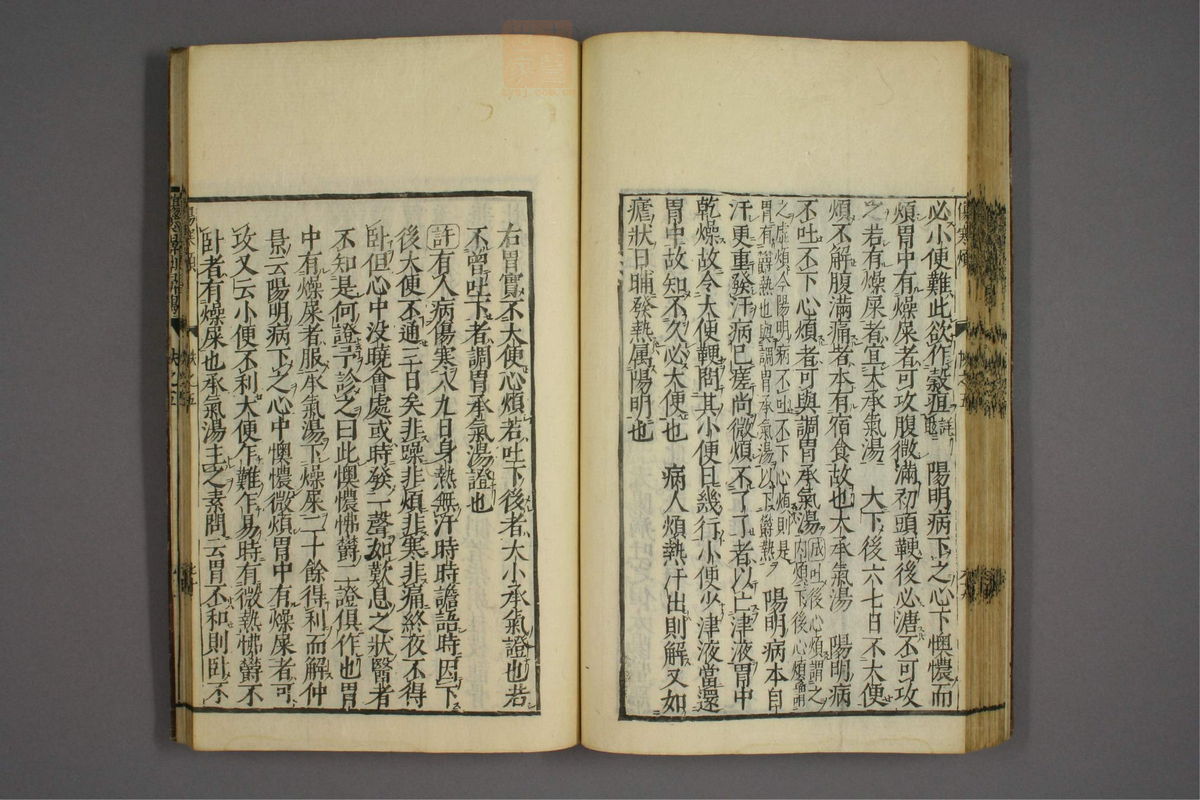 必小便難此欲作穀疸 陽明病下之心下懊憹而
煩胃中有燥屎者可攻腹微滿初頭鞕後必溏不可攻
之若有燥屎者宜大承氣湯 大下後六七日不大便
煩不解腹滿痛者本有宿食故也大承氣湯 陽明病
不吐不下心煩者可與調胃承氣湯成吐後心煩謂之內煩下後心煩謂
之虛煩今陽明病不吐不下心煩則是胃有鬱熱也與調胃承氣湯以下鬱熱 陽明病本自
汗更重發汗病已瘥尚微煩不了了者以亡津液胃中
乾燥故令大便鞕問其小便日幾行小便少津液當還
胃中故知不久必大便也 病人煩熱汗出則解又如
瘧狀日晡發熱属陽明也
右胃實不大便心煩若吐下後者大小承氣證也若
不曾吐下者調胃承氣湯證也
許有人病傷寒八九日身熱無汗時時譫語時因下
後大便不通三日矣非躁非煩非寒非痛終夜不得
卧但心中没曉會處或時發一聲如歎息之狀醫者
不知是何證予診之曰此懊憹怫鬱二證俱作也胃
中有燥屎者服承氣湯下燥屎二十餘得利而解仲
景云陽明病下之心中懊憹微煩胃中有燥屎者可
攻又云小便不利大便乍難乍易時有微熱怫鬱不
卧者有燥屎也承氣湯主之素問云胃不和則卧不